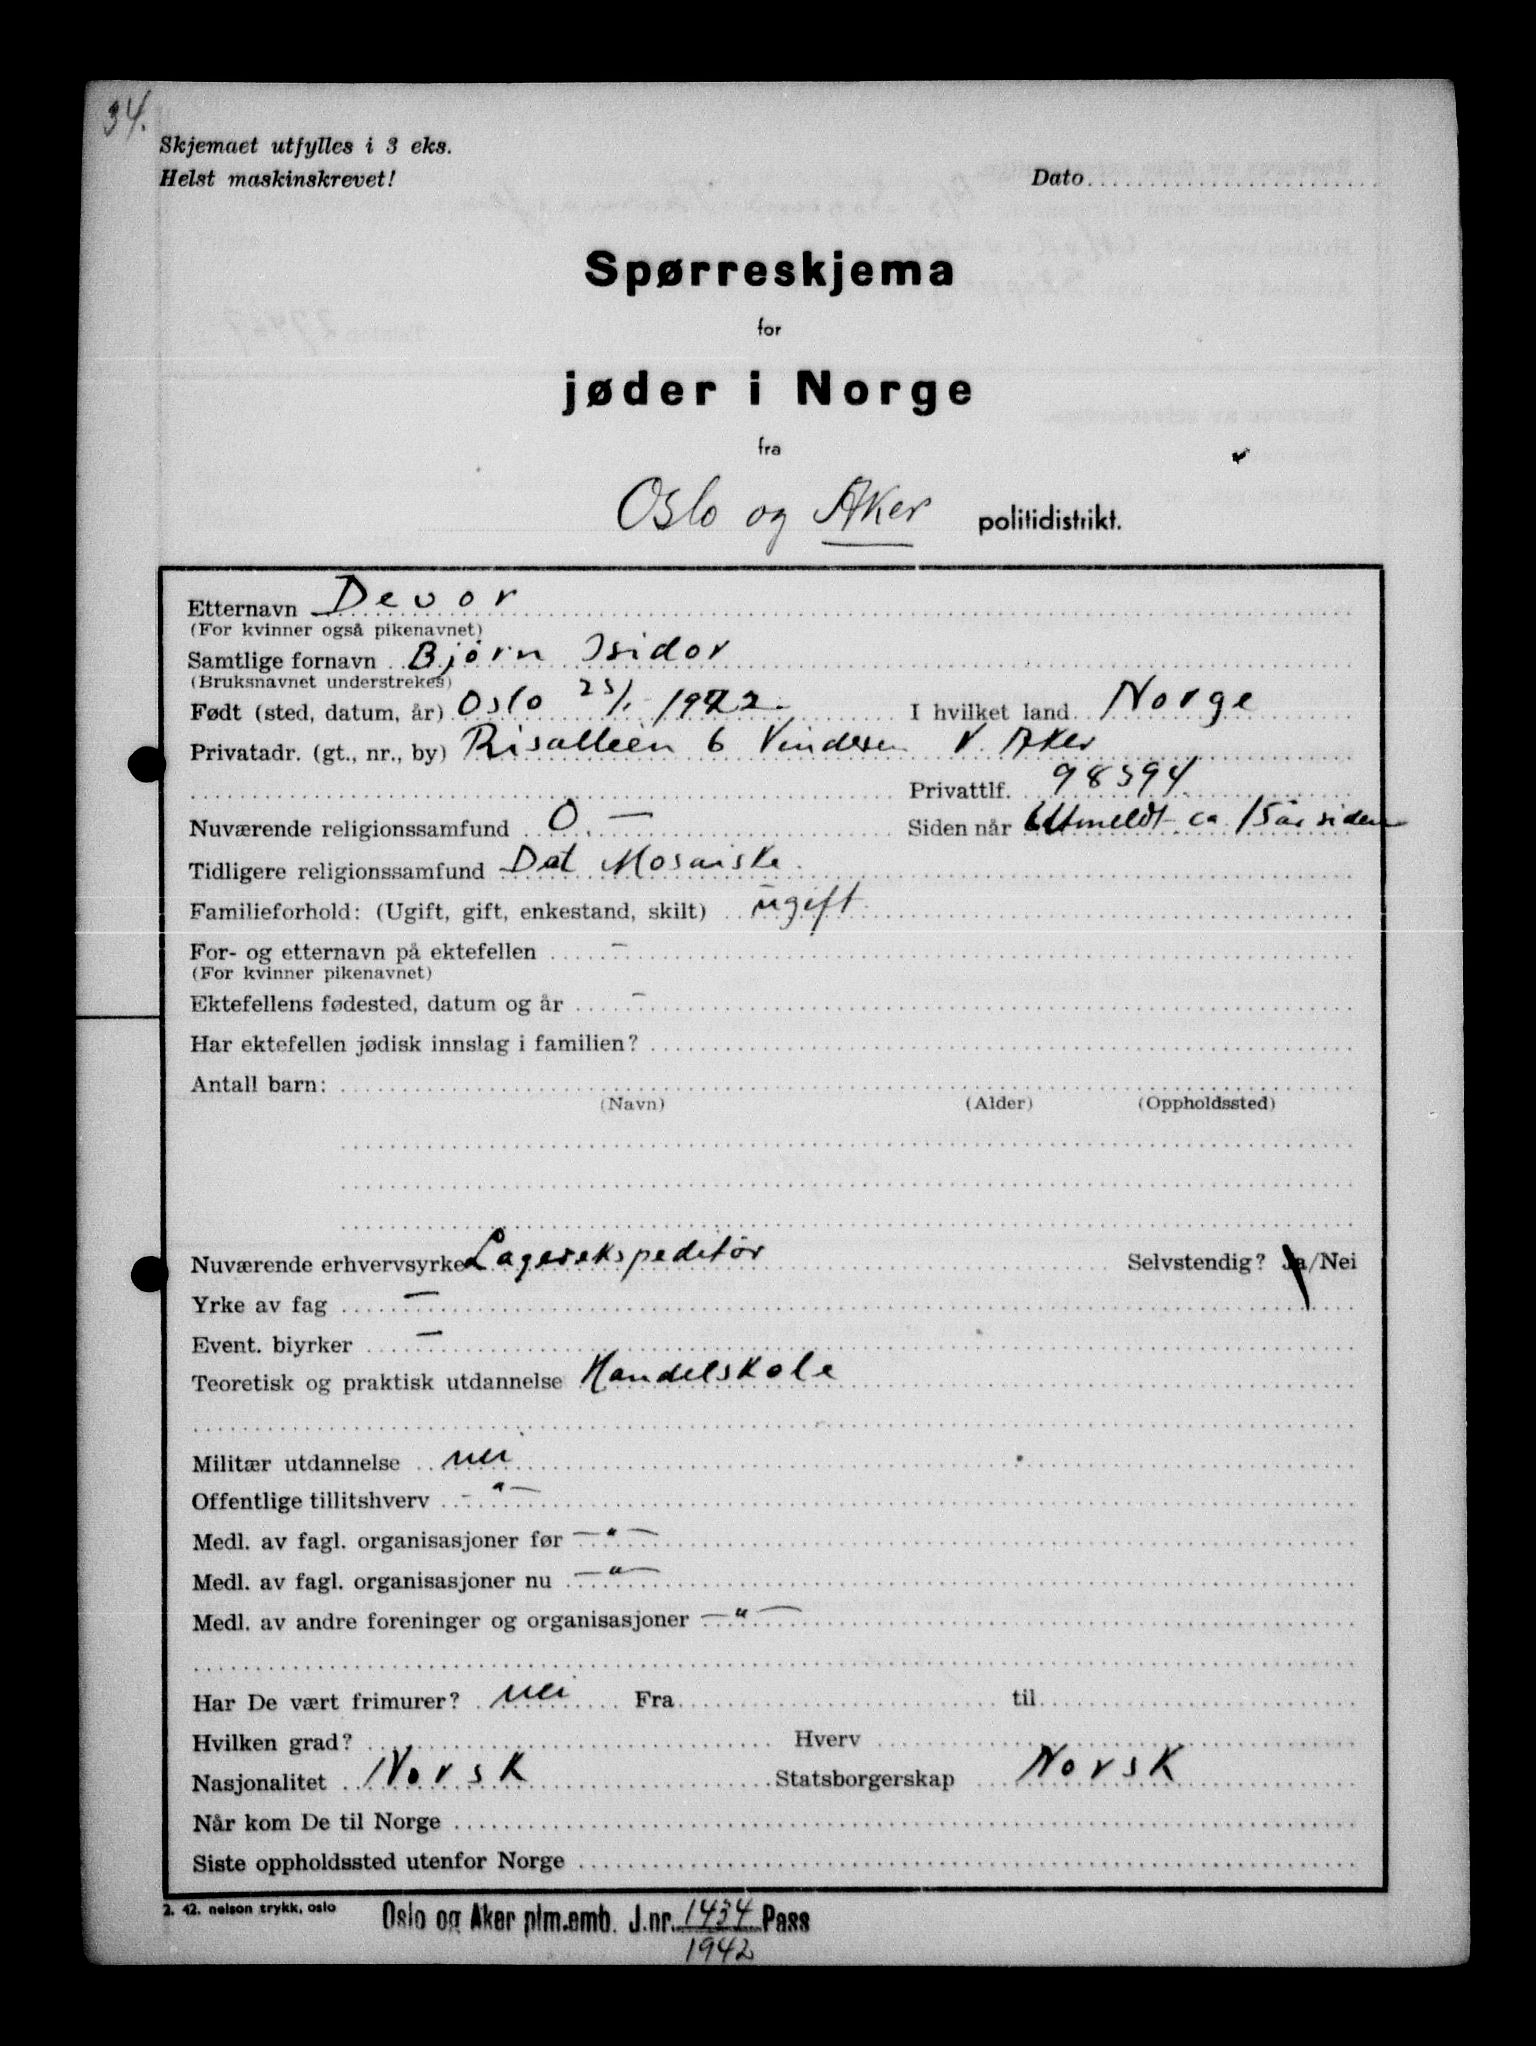 34.
Skjemaet utfylles i 3 eks.
Helst maskinskrevet!
Dato
Spørreskjema
for
jøder i Norge
fra
Oslo og Aker politidistrikt.
Etternavn Devor
(For kvinner også pikenavnet)
Samtlige fornavn Bjørn Isidor
(Bruksnavnet understrekes)
Født (sted, datum, år) Oslo 25/1 1922. I hvilket land Norge
Privatadr. (gt., nr., by) Risalleen 6 Vinderen V. Aker
Privattlf. 98594
Nuværende religionssamfund 0. — Siden når Utmeldt ca 15 år siden
Tidligere religionssamfund Det Mosaiske.
Familieforhold: (Ugift, gift, enkestand, skilt) ugift
For- og etternavn på ektefellen –
(For kvinner pikenavnet)
Ektefellens fødested, datum og år –
Har ektefellen jødisk innslag i familien?
Antall barn:
(Navn) (Alder) (Oppholdssted)
Nuværende erhvervsyrke Lagerekspeditør Selvstendig? Ja/Nei
Yrke av fag —
Event. biyrker —
Teoretisk og praktisk utdannelse Handelskole
Militær utdannelse nei
Offentlige tillitshverv – " —
Medl. av fagl. organisasjoner før — " —
Medl. av fagl. organisasjoner nu — " —
Medl. av andre foreninger og organisasjoner — " —
Har De vært frimurer? nei Fra til
Hvilken grad? Hverv
Nasjonalitet Norsk Statsborgerskap Norsk
Når kom De til Norge
Siste oppholdssted utenfor Norge
2. 42. nelson trykk, oslo
Oslo og Aker plm.emb. J.nr. 1434 Pass
1942